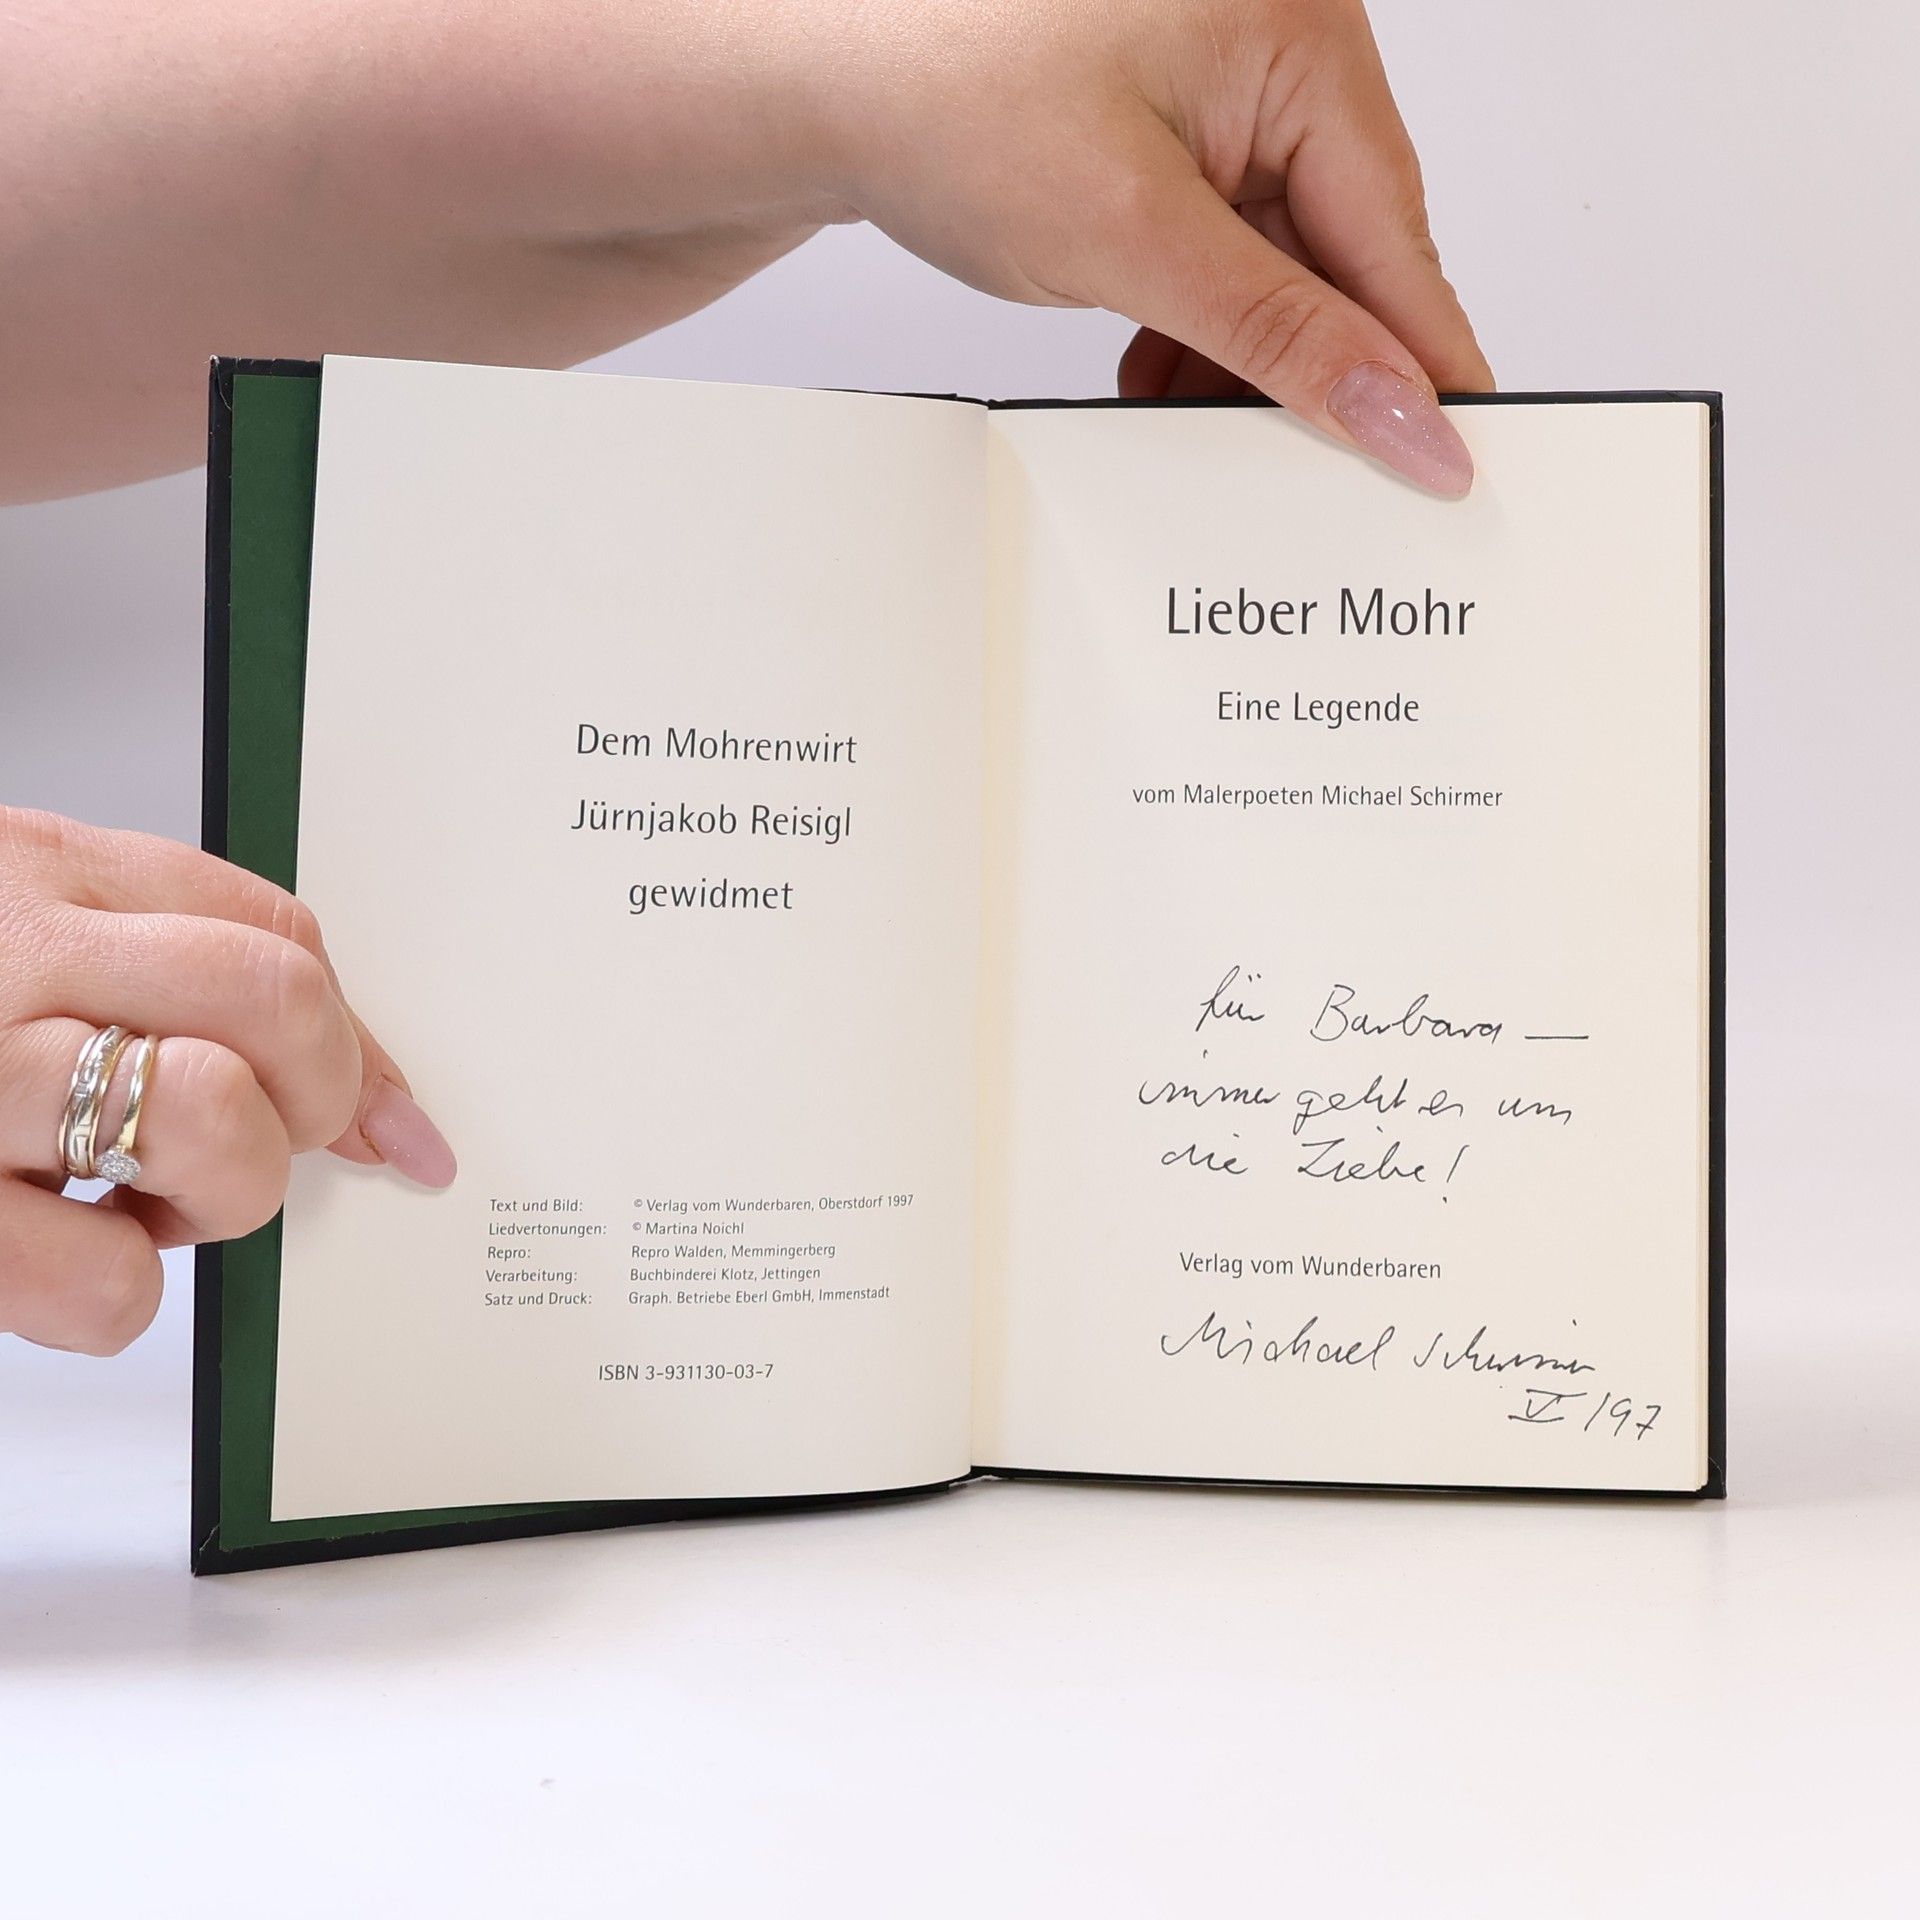 Dem Mohrenwirt
Jürnjakob Reisigl
gewidmet
Text und Bild: © Verlag vom Wunderbaren, Oberstdorf 1997
Liedvertonungen: © Martina Noichl
Repro: Repro Walden, Memmingerberg
Verarbeitung: Buchbinderei Klotz, Jettingen
Satz und Druck: Graph. Betriebe Eberl GmbH, Immenstadt
ISBN 3-931130-03-7
Lieber Mohr
Eine Legende
vom Malerpoeten Michael Schirmer
für Barbara —
immer geht es um
die Liebe!
Verlag vom Wunderbaren
Michael Schirmer
V/97